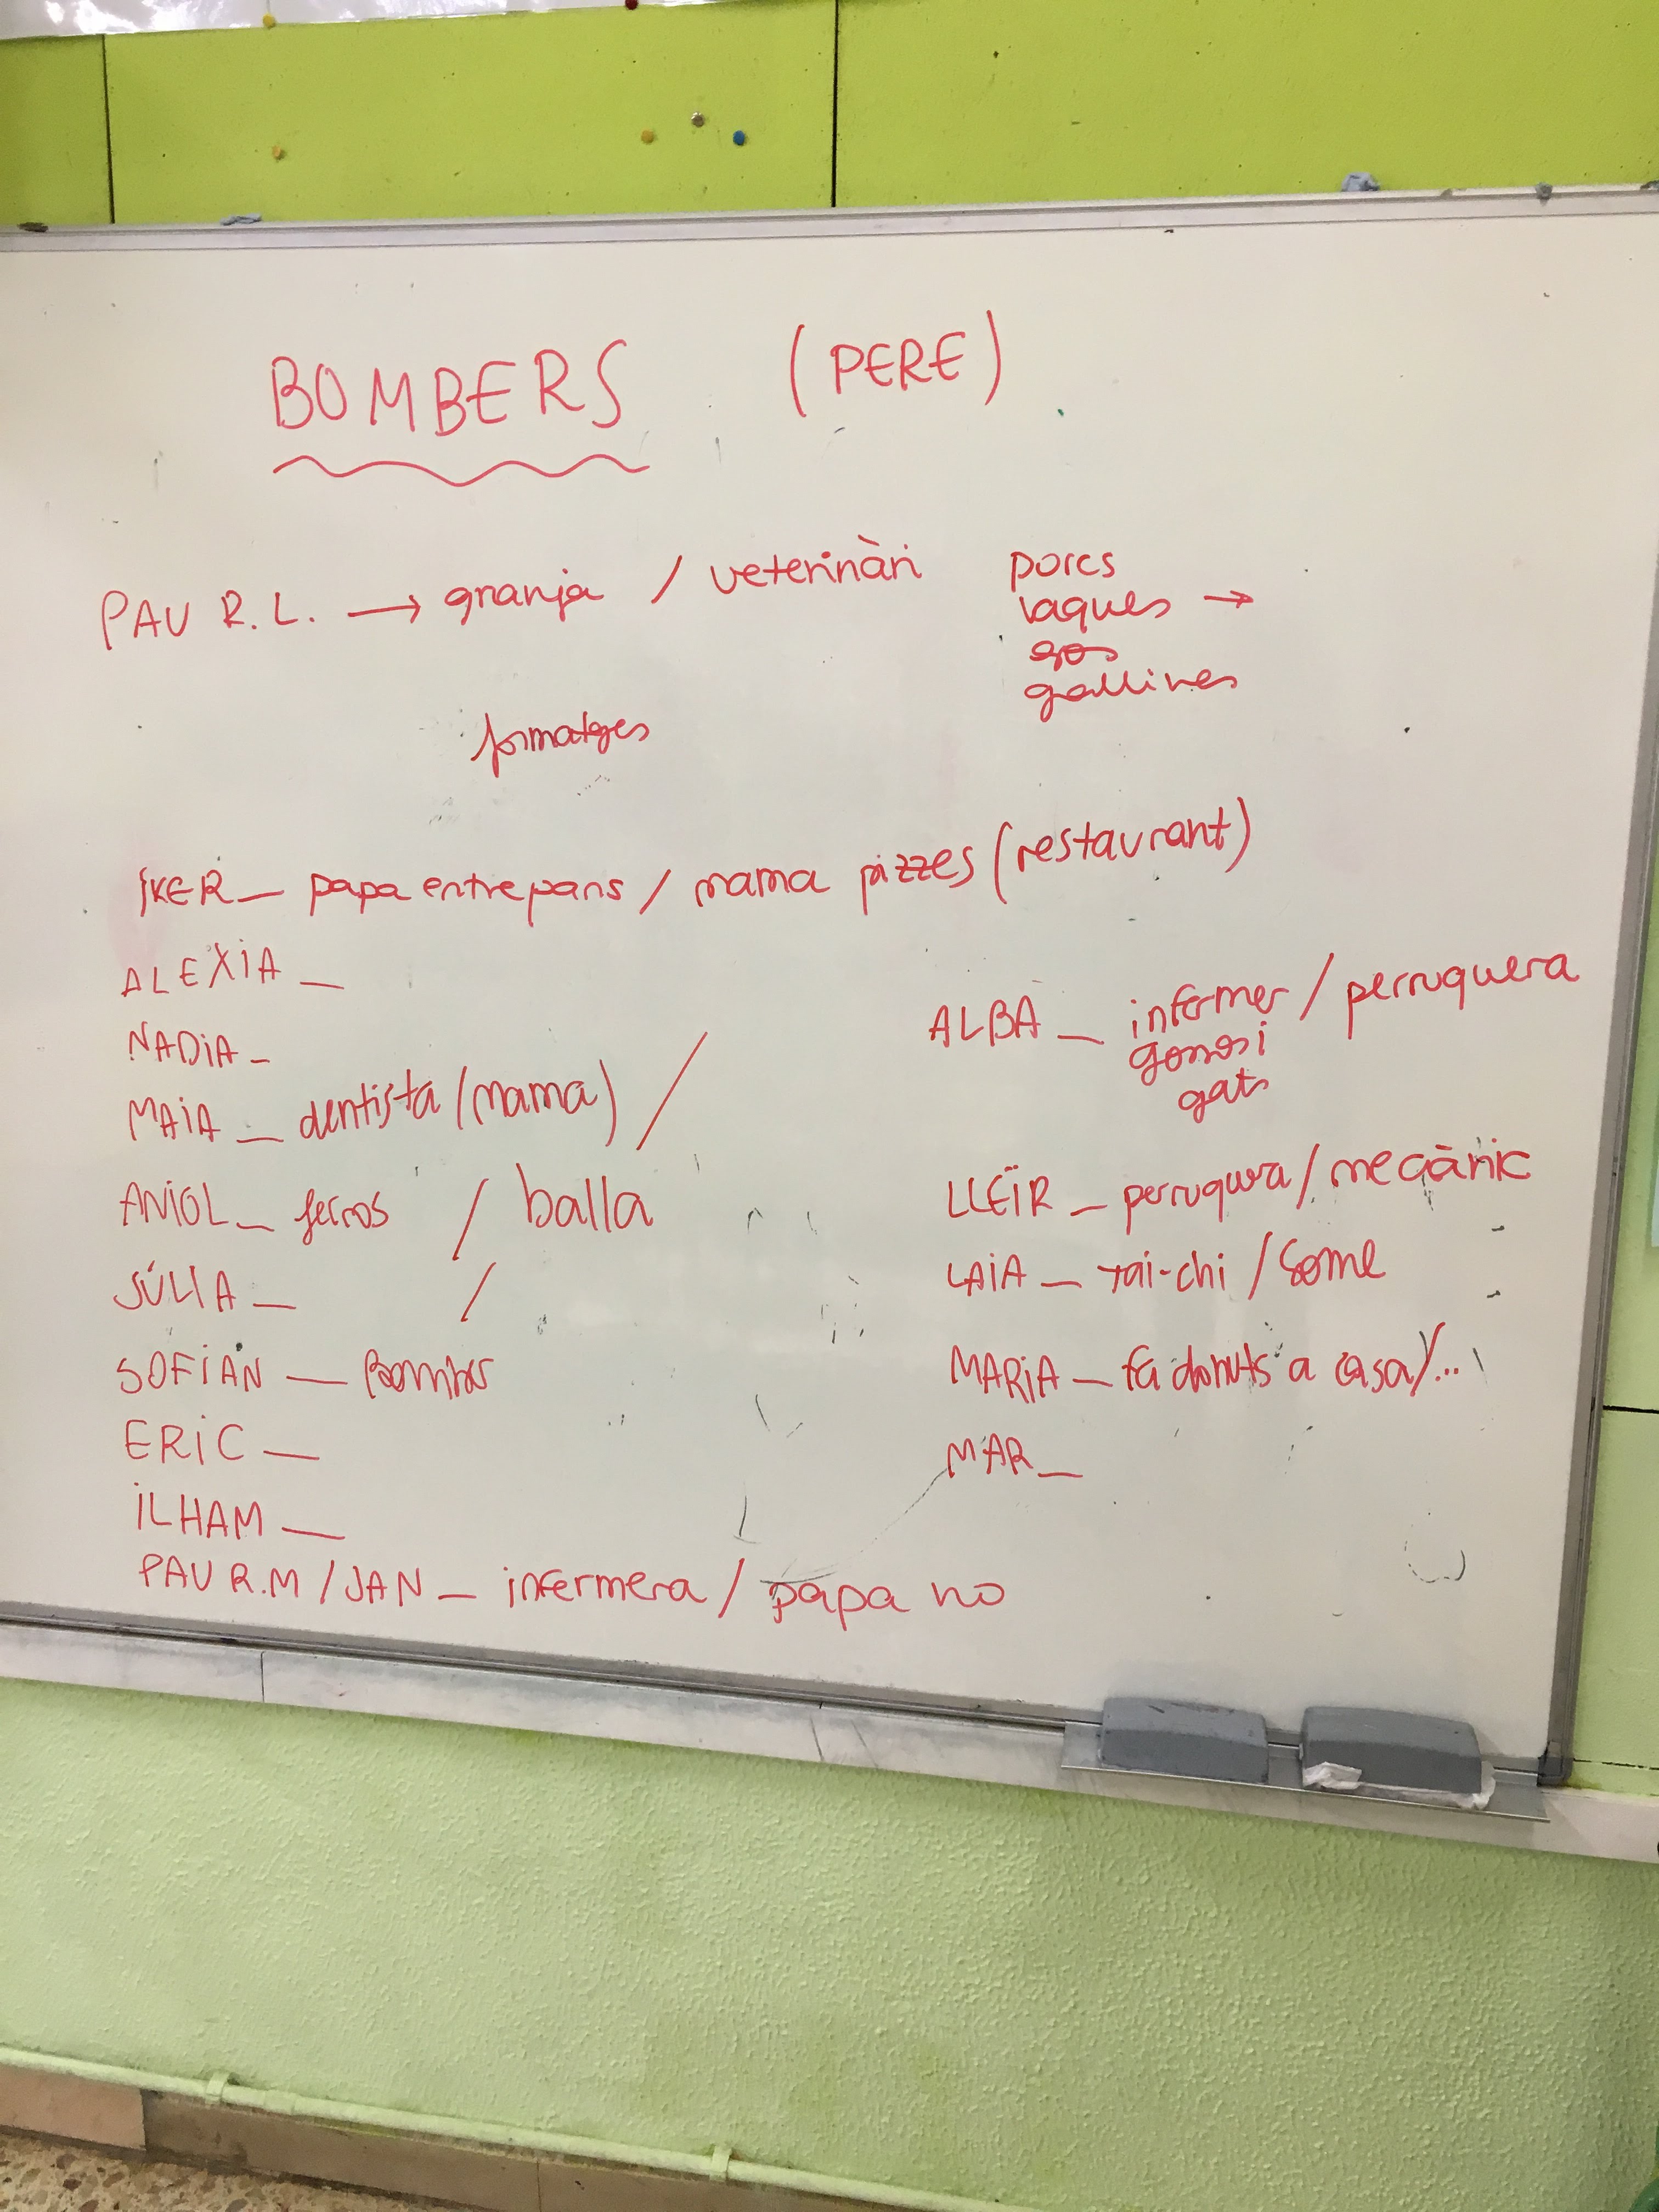 BOMBERS (PERE)
PAU R.L. → granja / veterinàri
porcs
vaques →
gos
gallines
formatges
IKER _ papa entrepans / mama pizzes (restaurant)
ALEXIA _
NADIA _
MAIA _ dentista (mama) /
ANIOL _ ferros / balla
JÚLIA _ /
SOFIAN _ Bomber
ERIC _
ILHAM _
PAU R.M / JAN _ infermera / papa no
ALBA _ infermer / perruquera
gossos i
gats
LLEÏR _ perruquera / mecànic
LAIA _ tai-chi /
MARIA _ fa donuts a casa / ...
MAR _